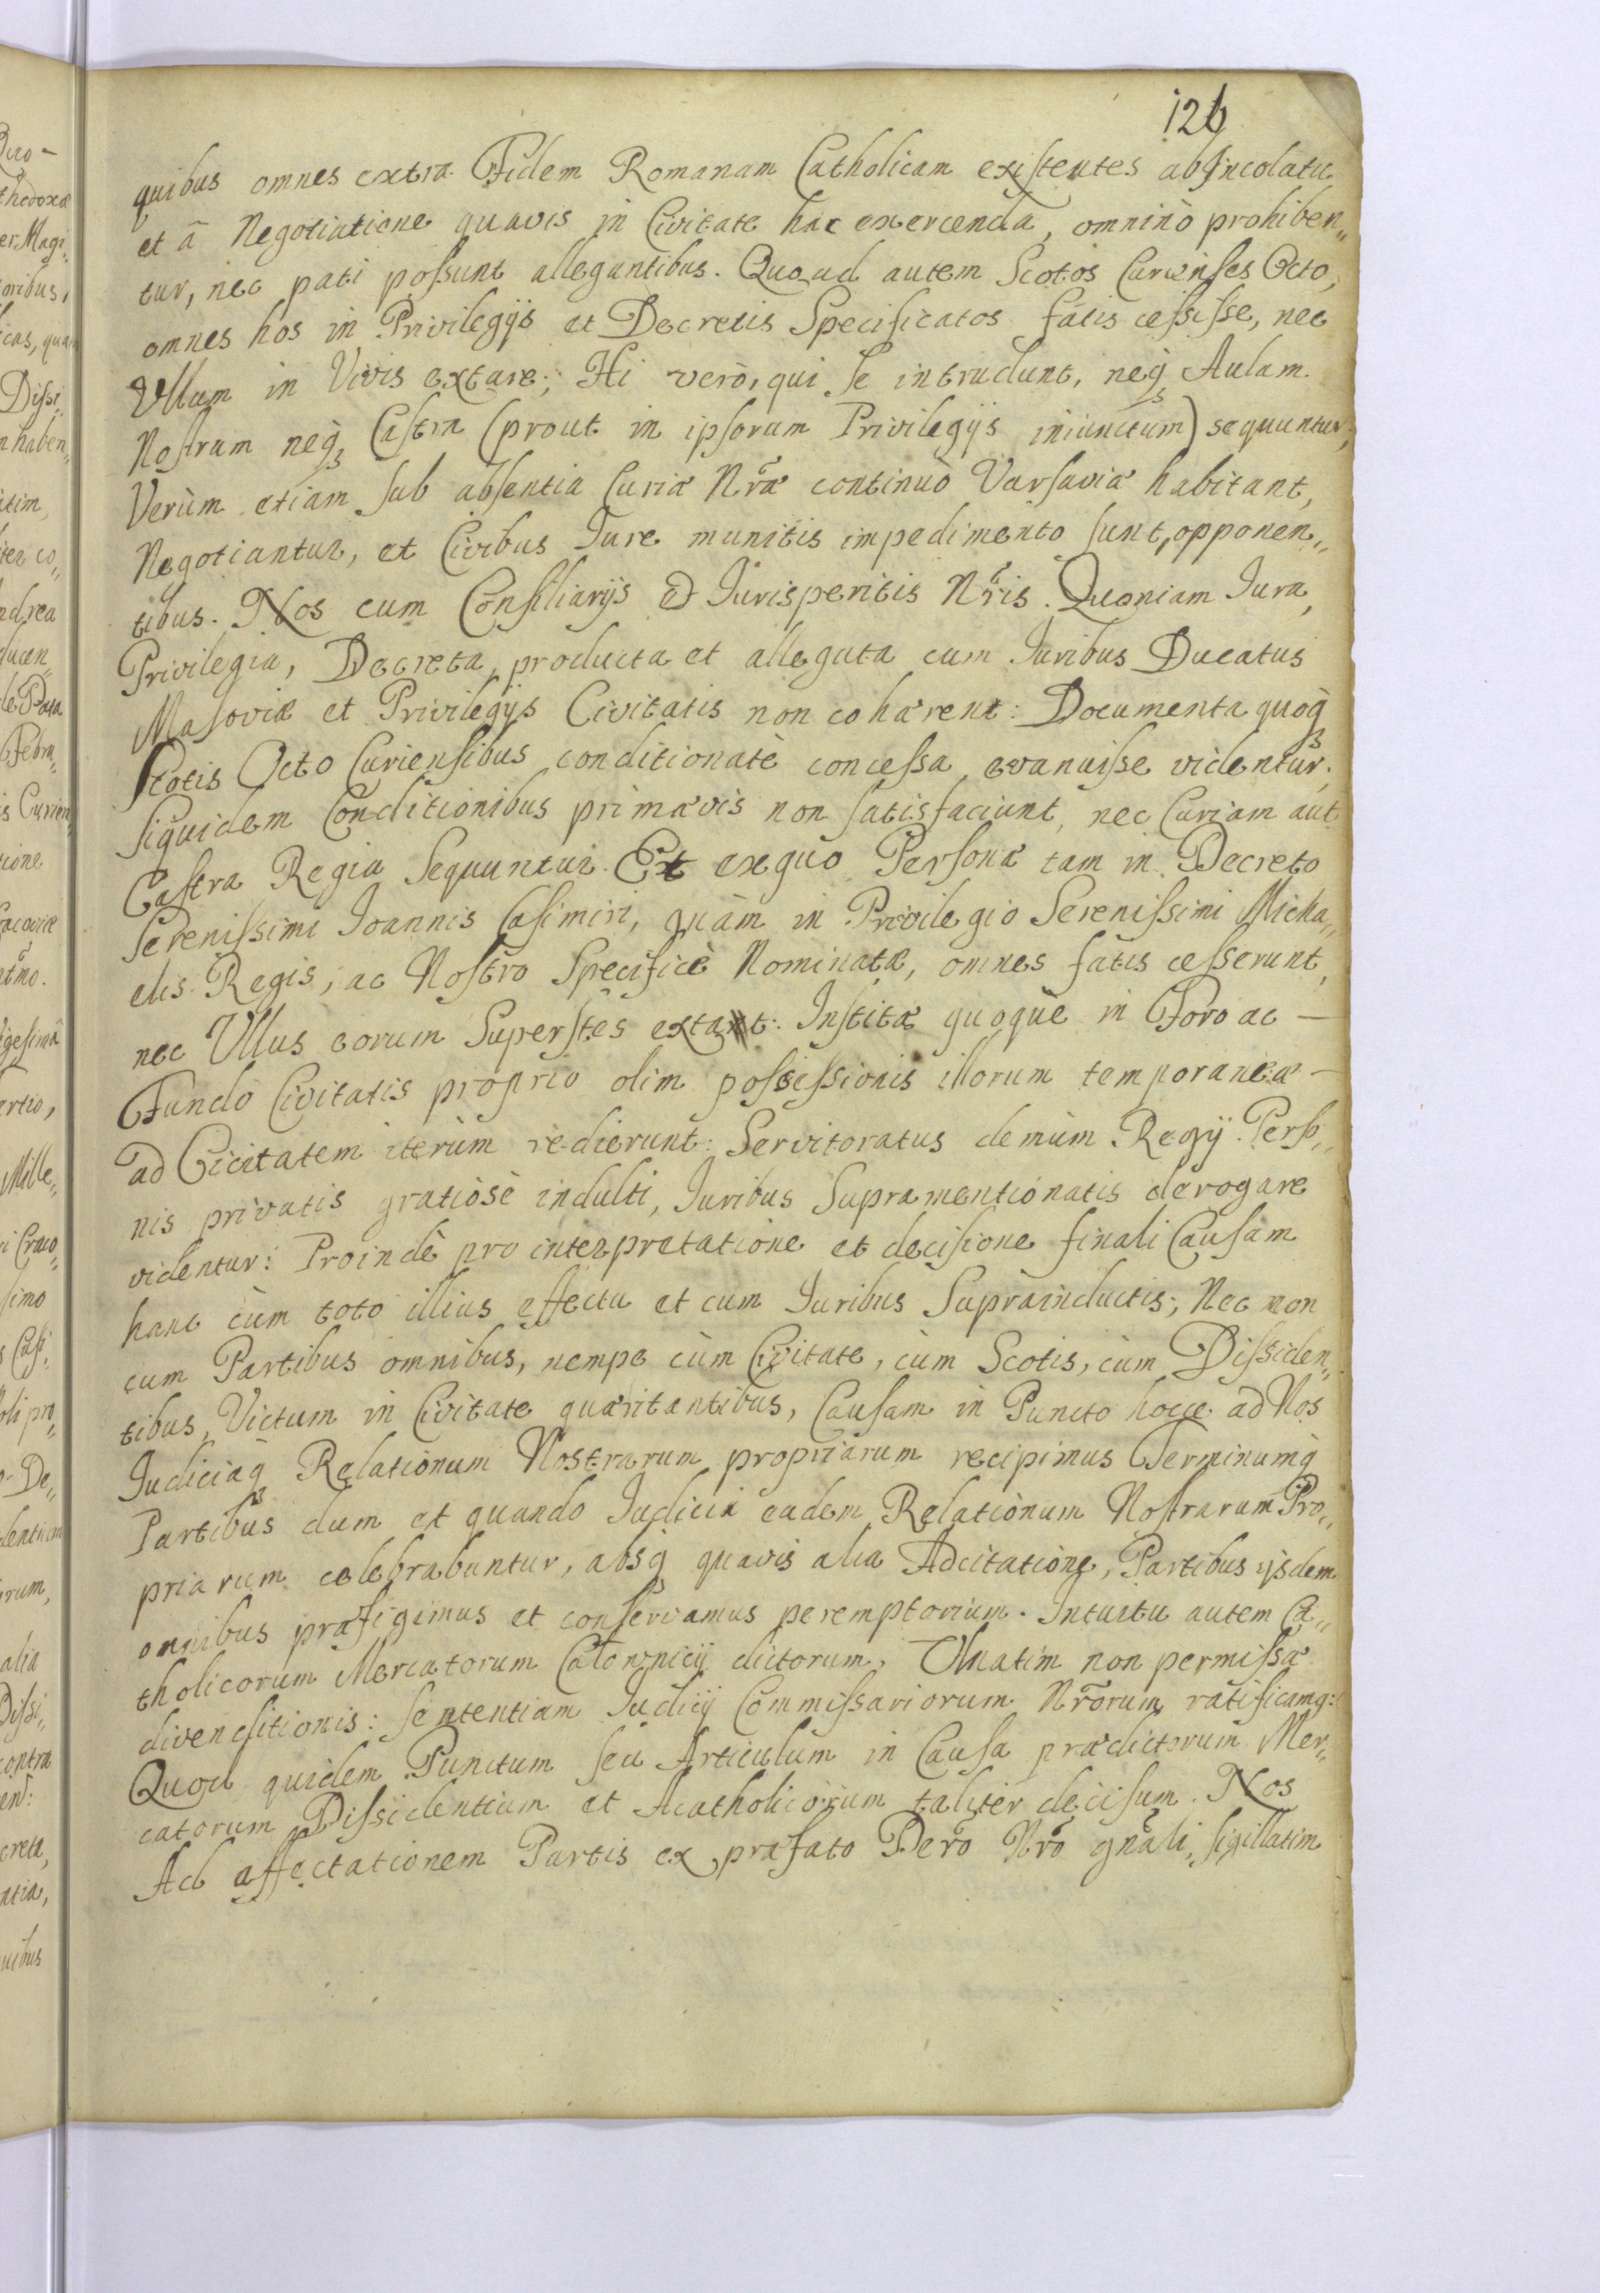 126
quibus omnes extra Fidem Romanam Catholicam existentes ab Incolatu
et â Negotiatione quavis in Civitate hac exercenda, omninò prohiben„
tur, nec pati possunt allegantibus. Quoad autem Scotos Curienses Octo,
omnes hos in Privilegÿs et Decretis Specificatos fatis cessisse, nec
Ullum in Vivis extare; Hi verò, qui se intrudunt, neqꝫ Aulam
Nostram neqꝫ Castra (prout in ipsorum Privilegÿs iniunctum) sequuntur,
Verùm etiam sub absentia Curiæ Nr̃æ continuò Varsaviæ habitant,
Negotiantur, et Civibus Iure munitis impedimento sunt, opponen„
tibus. Nos cum Consiliarÿs & Iurisperitis Nr̃is. Quoniam Iura,
Privilegia, Decreta, producta et allegata cum Iuribus Ducatus
Masoviæ et Privilegÿs Civitatis non cohærent: Documenta quoqꝫ
Scotis Octo Curiensibus conditionatè concessa evanuisse videntur,
siquidem Conditionibus primævis non satisfaciunt, nec Curiam aut
Castra Regia Sequuntur. Et exquo Personæ tam in Decreto
Serenissimi Ioannis Casimiri, quàm in Privilegio Serenissimi Micha„
elis Regis, ac Nostro Specificè Nominatæ, omnes fatis cesserunt,
nec Ullus eorum Superstes extat: Institæ quoque in Foro ac —
Fundo Civitatis proprio olim possessionis illorum temporaneæ —
ad Civitatem iterùm redierunt: Servitoratus demùm Regÿ Perso„
nis privatis gratiosè indulti, Iuribus Supramentionatis derogare
videntur: Proindè pro interpretatione et decisione finali Causam
hanc cùm toto illius effectu et cum Iuribus Suprainductis; Nec non
cum Partibus omnibus, nempe cùm Civitate, cùm Scotis, cùm Dissiden„
tibus, Victum in Civitate quæritantibus, Causam in Puncto hocce ad Nos
Iudiciaqꝫ Relationum Nostrarum propriarum recipimus Terminumq̀
Partibus dum et quando Iudicia eadem Relationum Nostrarum Pro„
priarum celebrabuntur, absq̀ quavis alia Adcitatione, Partibus ÿsdem
omnibus præfigimus et conservamus peremptorium. Intuitu autem Ca„
tholicorum Mercatorum dictorum, Ulnatim non permissæ
divenditionis: sententiam Iudicÿ Commissariorum Nr̃orum ratificamq:
Quod quidem Punctum seu Articulum in Causa prædictorum Mer„
catorum Dissidentium et Acatholicorum taliter decisum. Nos
Ad affectationem Partis ex præfato Dec̃ro Nr̃o gñali, sigillatim